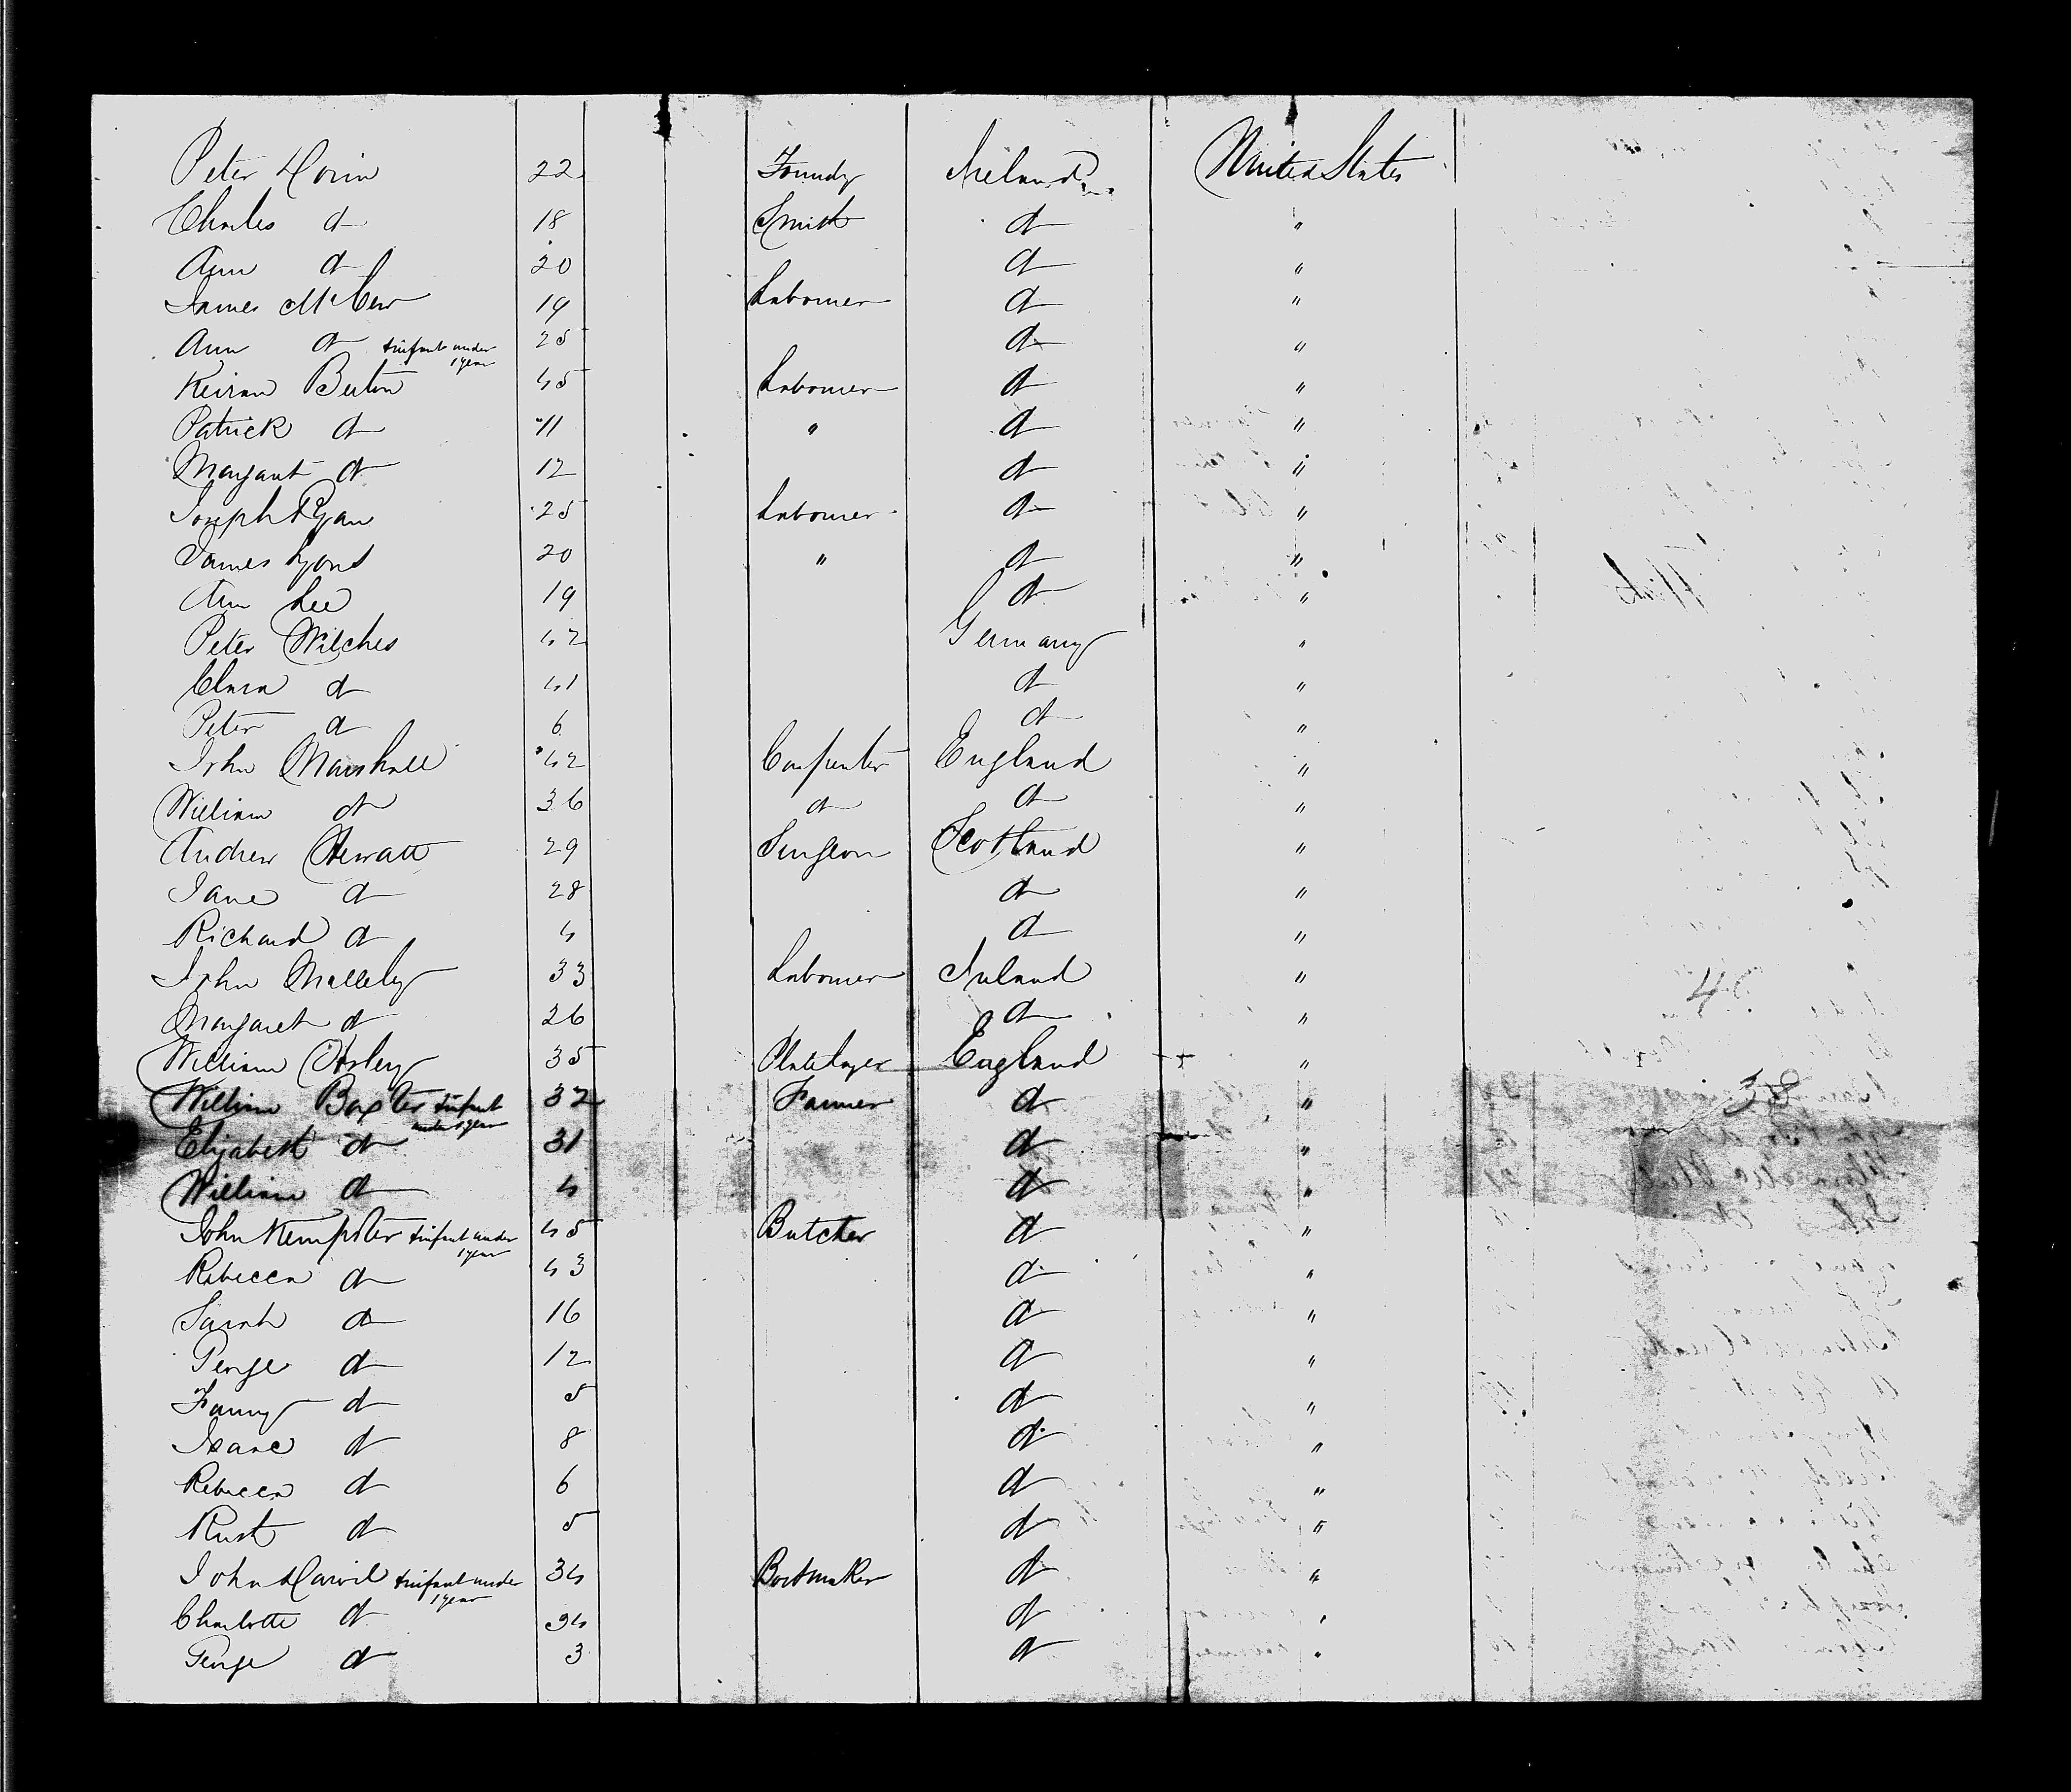 Peter Horin 22 Foundry Ireland United States
Charles do 18 Smith do "
Ann do 20 do "
James McCew 19 Labourer do "
Ann do & infant under 1 year 25 do "
Keiran Berton 45 Labourer do "
Patrick do 11 " do "
Margaret do 12 do "
Joseph Ryan 25 Labourer do "
James Lyons 20 " do "
Ann Lee 19 do "
Peter Wilches 42 Germany "
Clara do 41 do "
Peter do 6 do "
John Marshall 42 Carpenter England "
William do 36 do do "
Andrew Stewatt 29 Surgeon Scotland "
Jane do 28 do "
Richard do 4 do "
John Mallely 33 Labourer Ireland "
Margaret do 26 do "
William 35 Platelayer England "
William Baxter & infant under 1 year 32 Farmer do "
Elizabeth do 31 do "
William do 4 do "
John Kempster & infant under 1 year 45 Butcher do "
Rebecca do 43 do "
Sarah do 16 do "
George do 12 do "
Fanny do 5 do "
Isaac do 8 do "
Rebecca do 6 do "
do 5 do "
John & infant under 1 year 34 Bootmaker do "
Charlotte do 34 do "
George do 3 do "